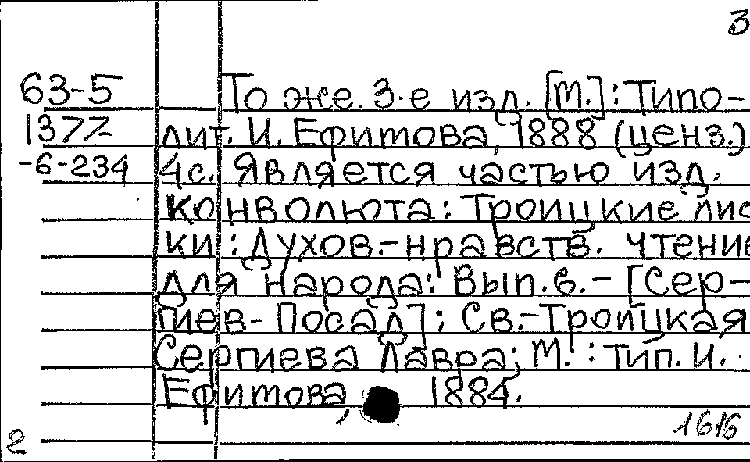 3
63-5
1377
-6-234
То же. 3-е изд. [М.]: Типо-
лит. И. Ефимова, 1888 (ценз.)
4с. Является частью изд.
конволюта: Троицкие лис
ки: Духов.-нравств. чтение
для народа: Вып.6.- [Сер-
гиев- Посад]; Св.-Троицкая
Сергиева Лавра; М. : Тип. И.
Ефимова, 1884.
1616
2